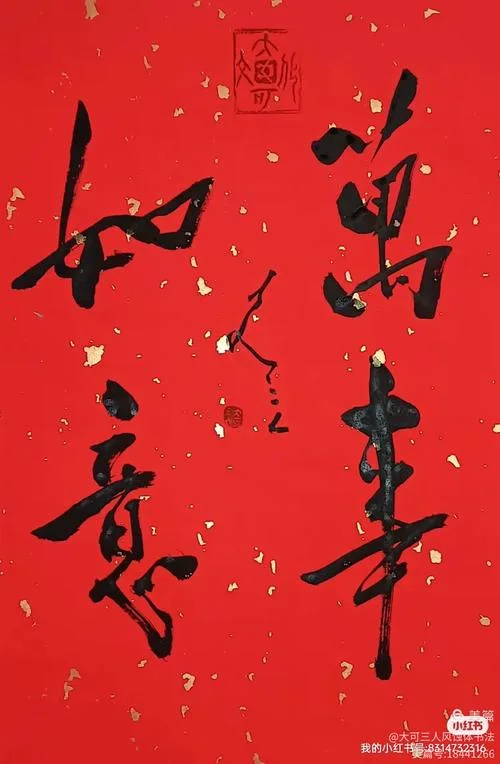 萬事
如意
美篇
小红书
@大可三人风蚀体书法
我的小红书号:8314732316
美篇号:18441266